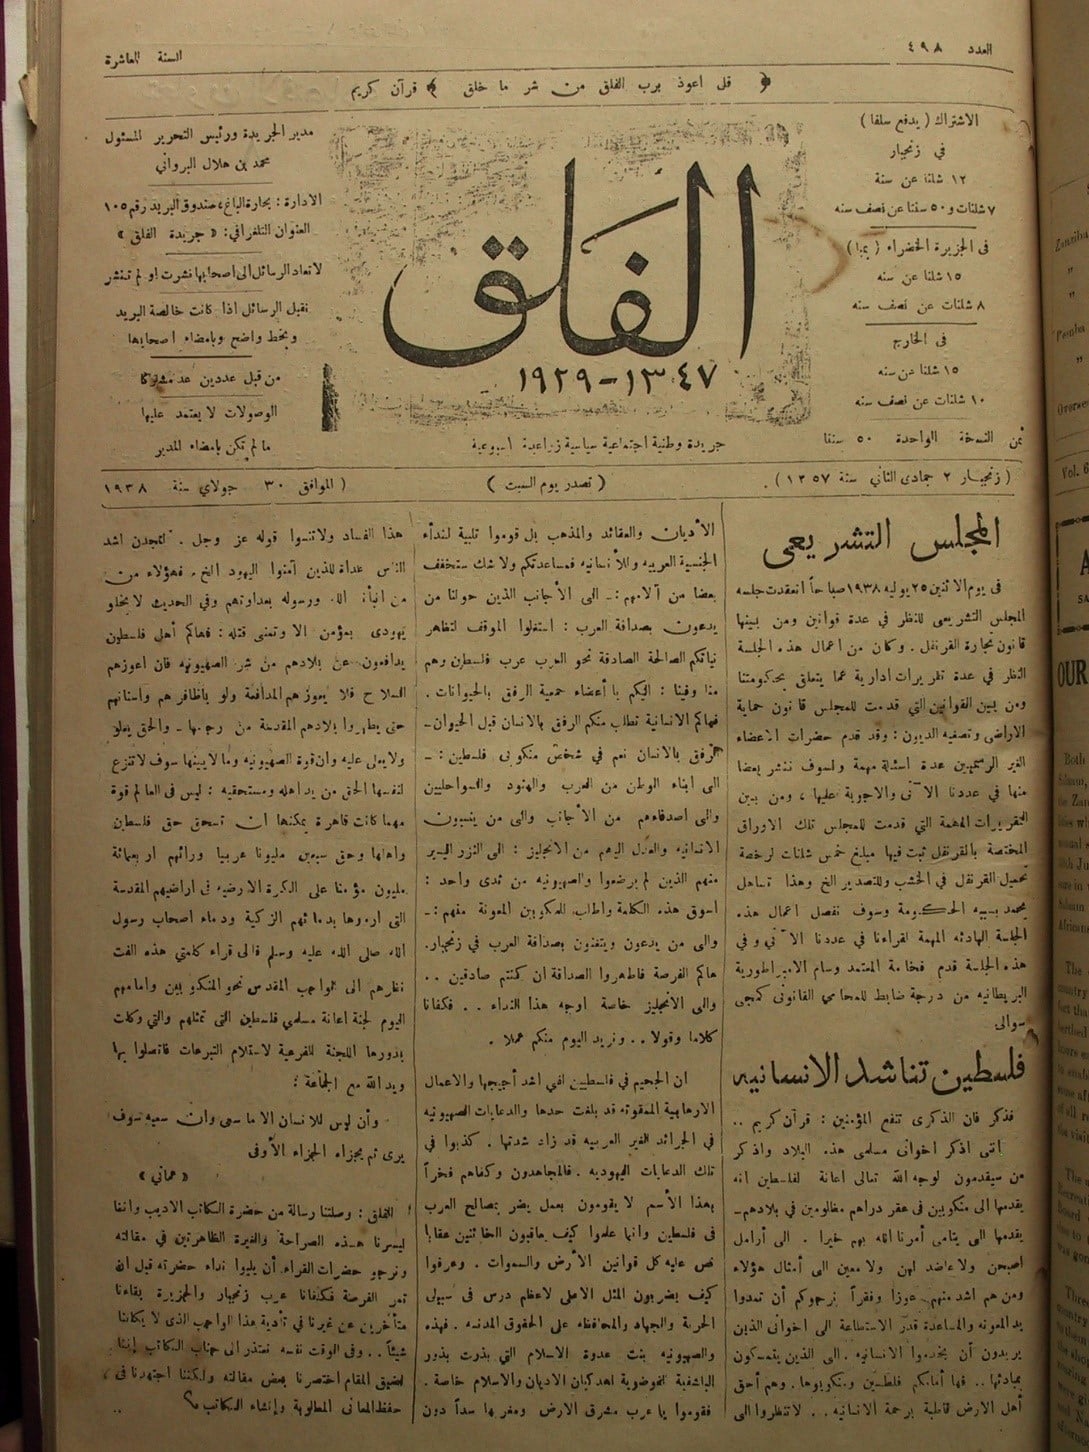 العدد ٤٩٨
السنة العاشرة
﴿ قل اعوذ برب الفلق من شر ما خلق ﴾ قرآن كريم
الاشتراك ( يدفع سلفا )
في زنجبار
١٢ شلنا عن سنة
٧ شلنات و٥٠ سنتا عن نصف سنه
فى الجزيرة الخضراء ( بمبا )
١٥ شلنا عن سنه
٨ شلنات عن نصف سنه
فى الخارج
١٥ شلنا عن سنه
١٠ شلنات عن نصف سنه
ثمن النسخة الواحدة ٥٠ سنتا
الفلق
١٣٤٧-١٩٢٩
جريدة وطنية اجتماعية سياسية زراعية اسبوعية
مدير الجريدة ورئيس التحرير المسئول
محمد بن هلال البرواني
الادارة : بحارة الباغ، صندوق البريد رقم ١٠٥
العنوان التلغرافي: « جريدة الفلق »
لا تعاد الرسائل الى اصحابها نشرت او لم تنشر
تقبل الرسائل اذا كانت خالصة البريد
وبخط واضح وبامضاء اصحابها
من قبل عددين عد مشتركا
الوصولات لا يعتمد عليها
ما لم تكن بامضاء المدير
( زنجبار ٢ جمادى الثاني سنة ١٣٥٧ )
( تصدر يوم السبت )
( الموافق ٣٠ جولاي سنة ١٩٣٨
المجلس التشريعى
فى يوم الاثنين ٢٥ يوليه ١٩٣٨ صباحاً انعقدت جلسه
المجلس التشريعى للنظر في عدة قوانين ومن بينها
قانون تجارة القرنفل . وكان من اعمال هذه الجلسة
النظر في عدة تقريرات ادارية عما يتعلق بحكومتنا
ومن بين القوانين التي قدمت للمجلس قانون حماية
الاراضى وتصفيه الديون : وقد قدم حضرات الاعضاء
الغير الرسميين عدة اسئلة مهمة ولسوف ننشر بعضا
منها في عددنا الآتى والاجوبة عليها ، ومن بين
التقريرات المهمة التي قدمت للمجلس تلك الاوراق
المختصة بالقرنفل ثبت فيها مبلغ خمس شلنات لرخصة
تحميل القرنفل في الخشب وللتصدير الخ وهذا تساهل
محمد بسبه الحكومة وسوف نفصل اعمال هذه
الجلسة الهادئه المهمة لقراءنا في عددنا الآتي وفي
هذه الجلسة قدم فخامة المعتمد وسام الامبراطورية
البريطانيه من درجة ضابط للمحامي القانونى كمجى
سوالى
فلسطين تناشد الانسانيه
فذكر فان الذكرى تنفع المؤمنين : قرآن كريم ..
اننى اذكر اخوانى مسلمى هذه البلاد واذكر
من سيقدمون لوجه الله تعالى اعانة لفلسطين انه
يقدمها الى منكوبين فى عقر دارهم مظلومين في بلادهم-
يقدمها الى يتامى أمرنا الله بهم خيرا . الى أرامل
اصبحن ولا عاضد لهن ولا معين الى أمثال هؤلاء
ومن هم اشد منهم عوزاً وفقراً نرجوكم أن تمدوا
يد المعونه والمساعدة قدر الاستطاعة الى اخوانى الذين
يريدون أن يخدموا الانسانيه . الى الذين يتمسكون
بمبادئها .. فها أمامكم فلسطين ومنكوبوها . وهم أحق
أهل الارض قاطبة برحمة الانسانيه .. لا تنظروا الى
الأديان والعقائد والمذهب بل قوموا تلبية لنداء
الجنسية العربيه وللأنسانيه فمساعدتكم ولا شك ستخفف
بعضا من آلامهم : - الى الأجانب الذين حولنا من
يدعون بصداقة العرب : استغلوا الموقف لتظهر
نياتكم الصالحة الصادقة نحو العرب عرب فلسطين وهم
منا وفينا : اليكم يا أعضاء جمعية الرفق بالحيوانات .
فهاكم الانسانية تطلب منكم الرفق بالانسان قبل الحيوان-
الرفق بالانسان نعم في شخص منكوبى فلسطين : -
الى ابناء الوطن من العرب والهنود والسواحليين
والى اصدقاءهم من الأجانب والى من ينسبون
الانسانيه والعدل اليهم من الانجليز : الى النزر اليسير
منهم الذين لم يرضعوا والصهيونيه من ثدى واحد :
اسوق هذه الكلمة واطلب للمنكوبين المعونة منهم : -
والى من يدعون ويتغنون بصداقة العرب في زنجبار.
هاكم الفرصة فاظهروا الصداقة ان كنتم صادقين ..
والى الانجليز خاصة اوجه هذا النداء .. فكفانا
كلاما وقولا .. ونريد اليوم منكم عملا .
ان الجحيم في فلسطين لفي اشد أجيجها والاعمال
الارهابية الممقوته قد بلغت حدها والدعايات الصهيونيه
في الجرائد الغير العربيه قد زاد شدتها . كذبوا في
تلك الدعايات اليهوديه . فالمجاهدون وكفاهم فخراً
بهذا الأسم لا يقومون بعمل يضر بمصالح العرب
فى فلسطين وانما علموا كيف يعاقبون الخائنين عقابا
نص عليه كل قوانين الأرض والسموات . وعرفوا
كيف يضربون المثل الاعلى لاعظم درس فى سبيل
الحرية والجهاد والمحافظه على الحقوق المدنيه . فهذه
والصهيونيه بنت عدوة الاسلام التي بذرت بذور
البلشفية الفوضوية لهدم كيان الاديان والاسلام خاصة .
فقوموا يا عرب مشرق الارض ومغربها سداً دون
هذا الفساد ولا تنسوا قوله عز وجل . لتجدن اشد
الناس عداوة للذين آمنوا اليهود الخ . فهؤلاء من
من انبأنا الله ورسوله بعداوتهم وفي الحديث لا يخلو
يهودى بمؤمن الا وتمنى قتله : فهاكم أهل فلسطين
يدافعون عن بلادهم من شر الصهيونيه فان اعوزهم
السلاح فلا يعوزهم المدافعة ولو باظافرهم واسنانهم
حتى يطهروا بلادهم المقدسة من رجسها - والحق يعلو
ولا يعلى عليه وان قوة الصهيونيه ومالا يينها سوف لا تنزع
لنفسها الحق من يد اهله ومستحقيه : ليس فى العالم قوة
مهما كانت قاهرة يمكنها ان تسحق حق فلسطين
واهلها وحق سبعين مليونا عربيا ورائهم اربعمائة
مليون مؤمنا على الكرة الارضيه فى اراضيهم المقدسة
التى ارووها بدمائهم الزكية ودماء اصحاب رسول
الله صلى الله عليه وسلم فالى قراء كلمتي هذه الفت
نظرهم الى الواجب المقدس نحو المنكوبين وامامهم
اليوم لجنة اعانة مسلمي فلسطين التى تمثلهم والتي وكلت
بدورها اللجنة الفرعية لاستلام التبرعات فاتصلوا بها
ويد الله مع الجماعة :
وأن ليس للانسان الا ما سعى وان سعيه سوف
يرى ثم يجزاه الجزاء الأوفى
« عماني »
الفلق : وصلتنا رسالة من حضرة الكاتب الاديب واننا
ليسرنا هذه الصراحة والغيرة الظاهرتين في مقالته
ونرجو حضرات القراء أن يلبوا نداء حضرته قبل ان
تمر الفرصة فكفانا عرب زنجبار والجزيرة بقاءنا
متأخرين عن غيرنا في تأدية هذا الواجب الذى لا يكلفنا
شيئاً .. وفى الوقت نفسه نعتذر الى جناب الكاتب إننا
لضيق المقام اختصرنا بعض مقالته ولكننا اجتهدنا في
حفظ المعانى المطلوبة وإنشاء الكاتب
Zanzibar
Pemba
Overseas
Vol. 6
OUR
Both
The